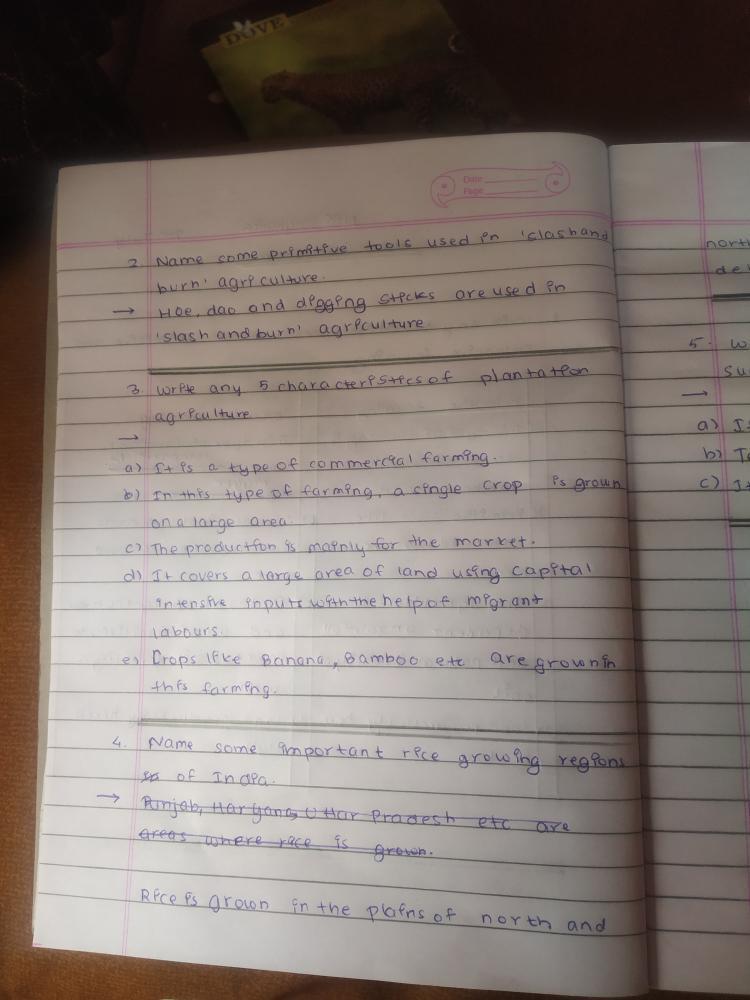 DOVE
Date
Page
2. Name come primitive tools used in 'slash and
burn' agriculture.
→ Hoe, dao and digging sticks are used in
'slash and burn' agriculture.
3. Write any 5 characteristics of plantation
agriculture
→
a) It is a type of commercial farming.
b) In this type of farming, a single crop is grown
on a large area.
c) The production is mainly for the market.
d) It covers a large area of land using capital
intensive inputs with the help of migrant
labours.
e) Crops like Banana, Bamboo etc are grown in
this farming.
4. Name some important rice growing regions
of India.
→ Punjab, Haryana, Uttar Pradesh etc are
areas where rice is grown.
Rice is grown in the plains of north and
north
5.
→
a) It
b)
c) It